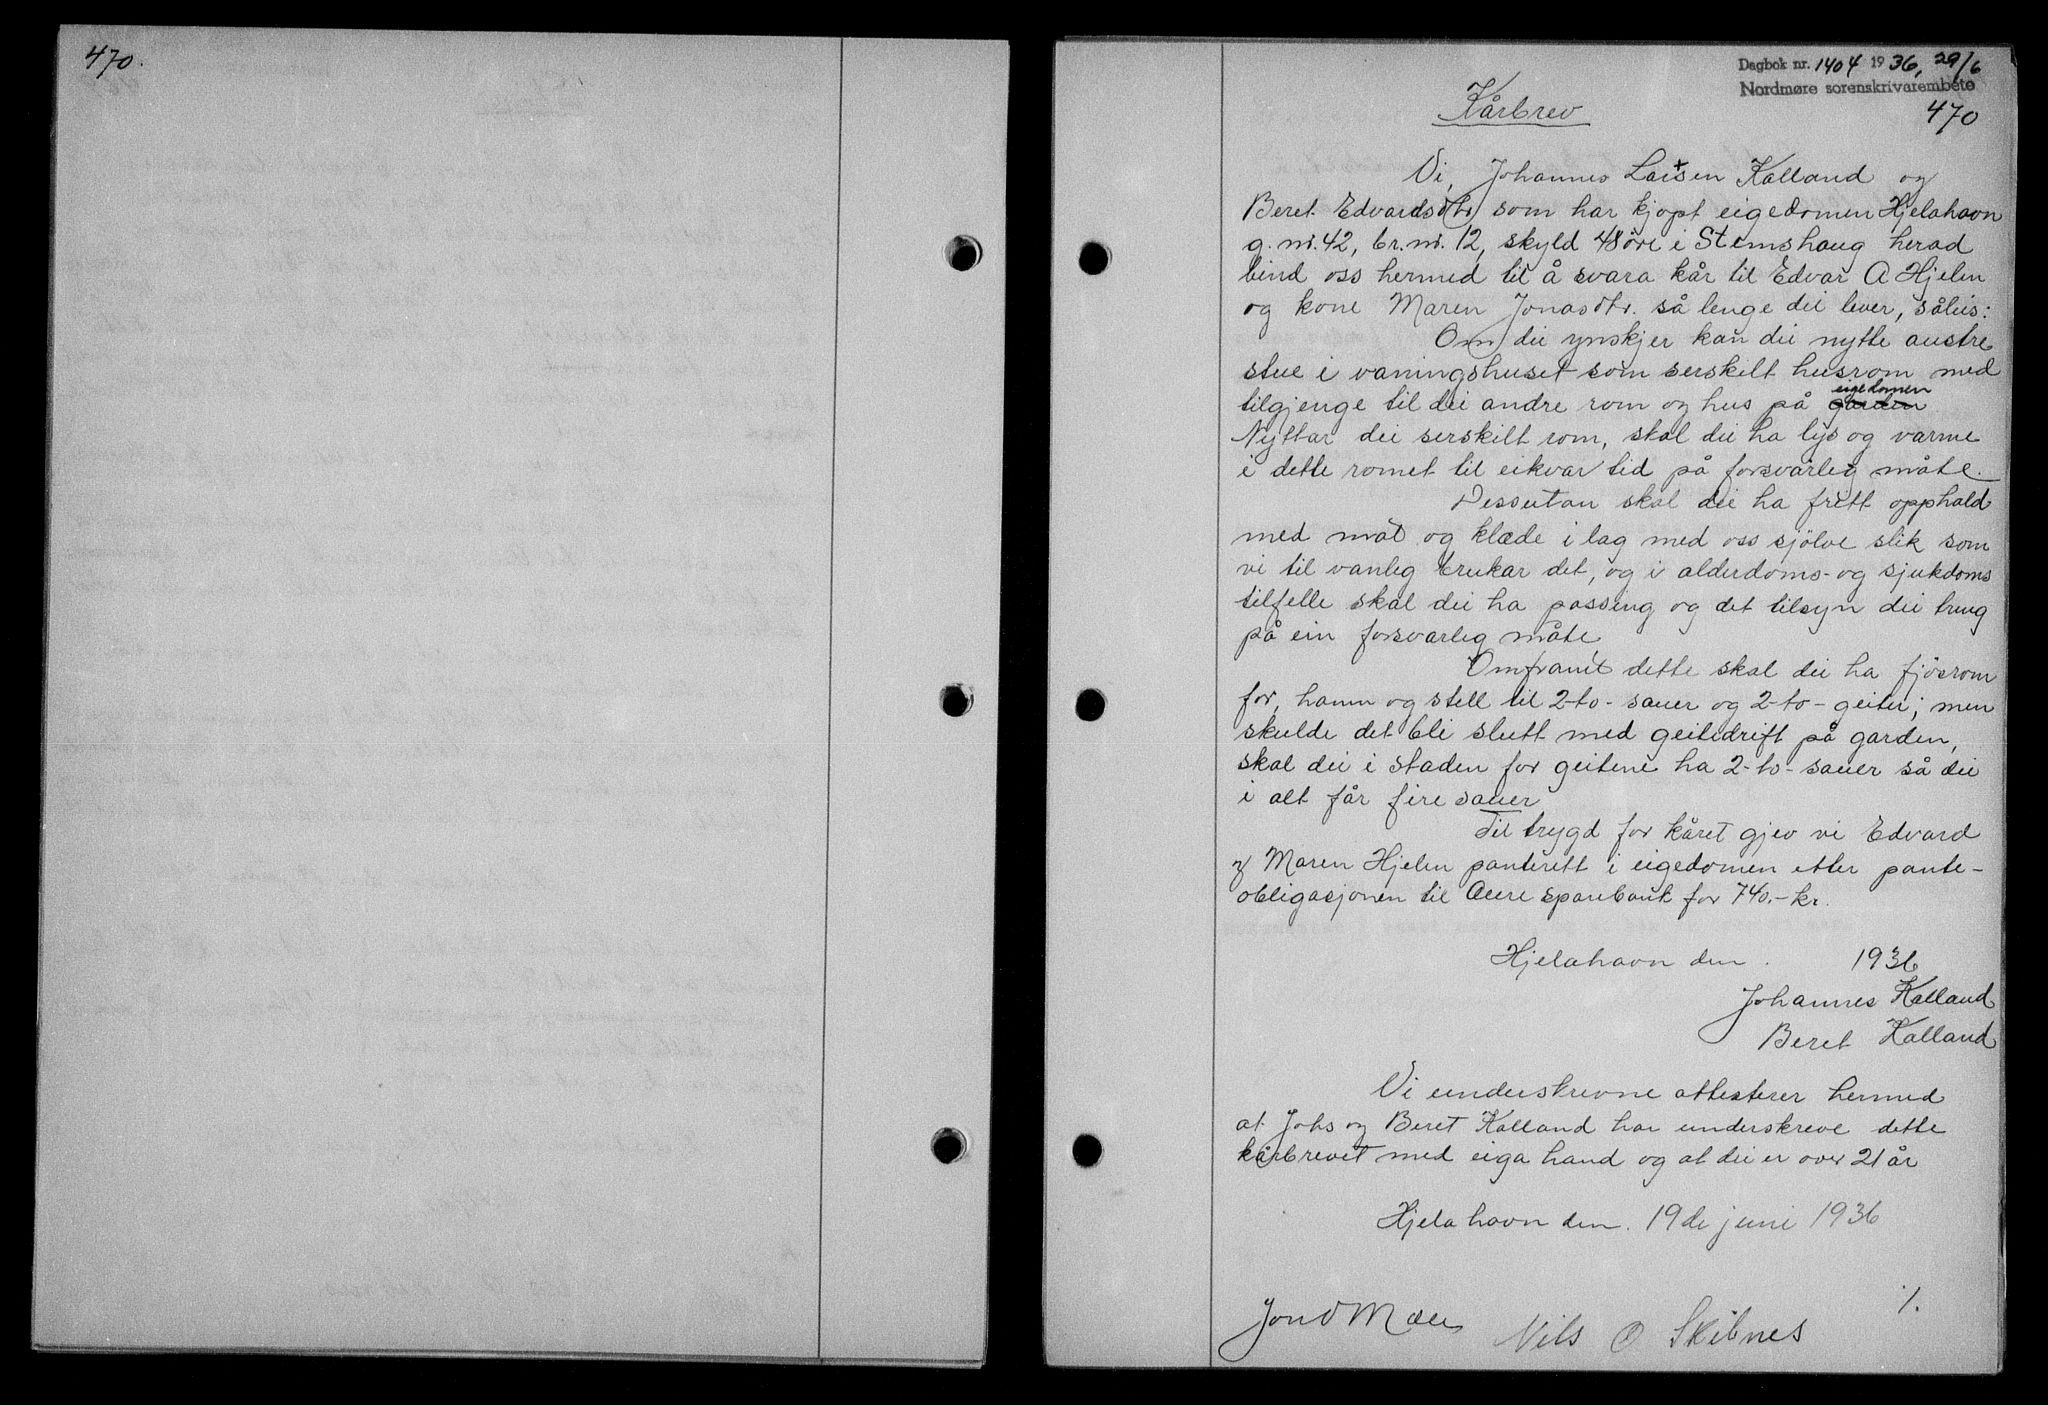 470.
Dagbok nr. 1404 1936, 29/6
Nordmøre sorenskrivarembete
470
Kårbrev
Vi, Johannes Larsen Kalland og
Beret Edvardsdtr som har kjøpt eigedomen Hjelahavn
g.nr. 42, br.nr. 12, skyld 48 öre i Stemshaug herad
bind oss hermed til å svara kår til Edvar A Hjelen
og kone Maren Jonasdtr. så lenge dei lever, såleis:
Om dei ynskjer kan dei nytte austre
stue i vaningshuset som serskilt husrom med
tilgjenge til dei andre rom og hus på garden eigedomen
Nyttar dei serskilt rom, skal dei ha lys og varme
i dette romet til eikvar tid på forsvarleg måte.
Dessutan skal dei ha fritt opphald
med mat og klæde i lag med oss sjölve slik som
vi til vanleg brukar det, og i alderdoms- og sjukdoms
tilfelle skal dei ha passing og det tilsyn dei treng
på ein forsvarleg måte
Omframt dette skal dei ha fjösrom
for, hamn og stell til 2-to- sauer og 2-to- geiter; men
skulde det bli slutt med geitedrift på garden,
skal dei i staden for geitene ha 2-to- sauer så dei
i alt får fire sauer
Til trygd for kåret gjev vi Edvard
og Maren Hjelen panterett i eigedomen etter pante-
obligasjonen til Aure sparebank for 740.- kr.
Hjelahavn den . 1936
Johannes Kalland
Beret Kalland
Vi underskrevne attesterer hermed
at Johs og Beret Kalland har underskreve dette
kårbrevet med eiga hand og at dei er over 21 år
Hjelahavn den. 19de juni 1936
Jon O Nils O Skibnes